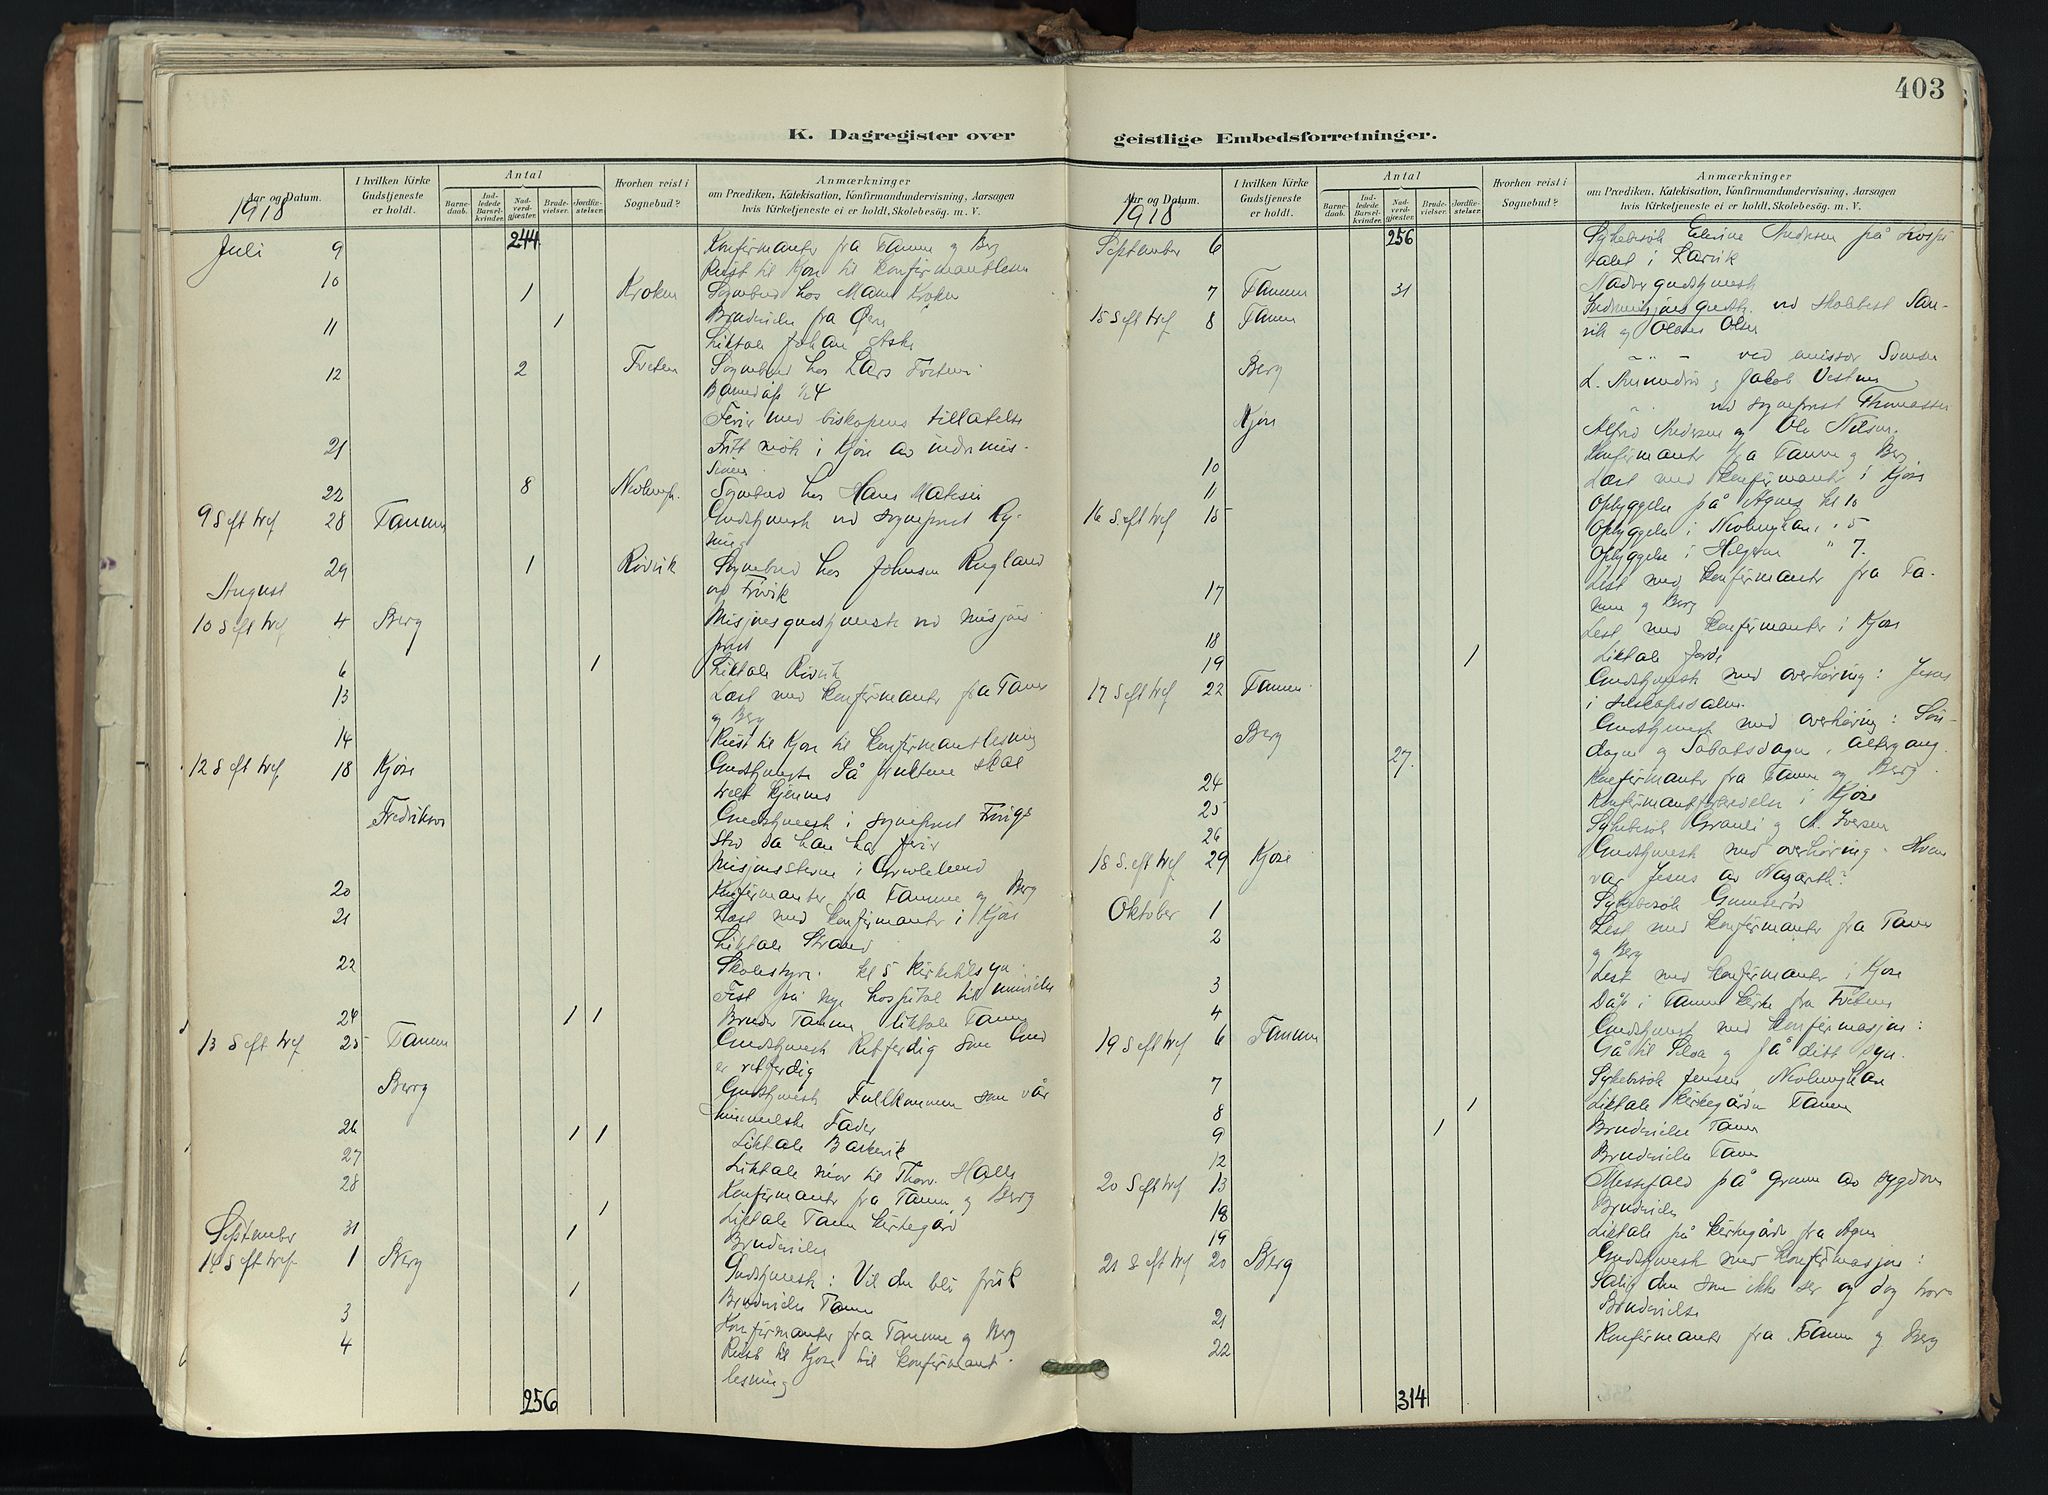 403
K. Dagregister over
geistlige Embedsforretninger.
Aar og Datum.
I hvilken Kirke Gudstjeneste er holdt.
Antal
Barnedaab.
Indledede Barselkvinder.
Nadverdgjæster.
Brudevielser.
Jordfæstelser.
Hvorhen reist i Sognebud?
Anmærkninger
om Prædiken, Katekisation, Konfirmandundervisning, Aarsagen
hvis Kirketjeneste ei er holdt, Skolebesøg. m. V.
1918
244
Juli 9 Konfirmanter fra Tanum og Berg
10 Reist til Kjose til konfirmantlesn
1 Kroken Sognebud hos
11 1 Brudevielse fra
Liktale Johan Aske
12 2 Tveten Sognebud hos Lars Tveten
Barnedåp 1/4
Ferie med biskopens tillatelse
21 Fritt møte i Kjose av indremis-
sionen
22 8 Nevlungh. Sognebud hos Hans
9 S eft tref 28 Tanum Gudstjeneste ved sogneprest Ry-
ning
29 1 Rövik Sognebud hos Johnsen Rugland
August
10 S eft tref 4 Berg Misjonsgudstjeneste ved misjons
prest
6 1 Liktale Rövik
13 Læst med konfirmanter fra Tanum
og Berg
14 Reist til Kjose til konfirmantlesning
12 S eft tref 18 Kjose Gudstjeneste På frukten skal
treet kjennes
Fredriksv Gudstjeneste i sogneprest
sted da han har ferie
Misjonsstevne i
20 Konfirmanter fra Tanum og Berg
21 Læst med konfirmanter i Kjose
Liktale Strand
22 Skolestyre. kl 5 kirketilsyn
Fest på nye hospital
24 1 1 Brudev Tanum, liktale Tanum
13 S eft tref 25 Tanum Gudstjeneste Retferdig som Gud
er retferdig
Berg Gudstjeneste Fullkommen som vår
himmelske Fader
26 1 1 Liktale
27 Liktale mor til Thorv. Halle
28 Konfirmanter fra Tanum og Berg
1 Liktale Tanum kirkegård
September 31 1 Brudevielse
14 S eft tref 1 Berg Gudstjeneste: Vil du bli frisk
1 Brudevielse Tanum
3 Konfirmanter fra Tanum og Berg
4 Reist til Kjose til konfirmant-
lesning
256
Aar og Datum.
I hvilken Kirke Gudstjeneste er holdt.
Antal
Barnedaab.
Indledede Barselkvinder.
Nadverdgjæster.
Brudevielser.
Jordfæstelser.
Hvorhen reist i Sognebud?
Anmærkninger
om Prædiken, Katekisation, Konfirmandundervisning, Aarsagen
hvis Kirketjeneste ei er holdt, Skolebesøg. m. V.
1918
256
September 6 Sykebesök Andersen på hospi
talet i Larvik
7 Tanum 31 Nadvergudstjeneste
15 S eft tref 8 Tanum Indremisjonsgudstj. ved San-
vik og Olaves Olsen
Berg ved emissær
L. og Jakob Vestrum
Kjose ved sogneprest Thomassen
Alfred Andersen og Ole Nilsen.
10 Konfirmanter fra Tanum og Berg
11 Læst med konfirmanter i Kjose
16 S. eft tref 15 Opbyggelse på Agnes kl 10
Opbyggelse i Nevlunghavn " 5
Opbyggelse i Helgeroa " 7.
17 Lest med konfirmanter fra Ta-
num og Berg
18 Lest med konfirmanter i Kjose
19 1 Liktale
17 S eft tref 22 Tanum Gudstjeneste med overhöring: Jesus
i selskapssalen.
Berg 27 Gudstjeneste med overhöring: Sön-
dagen og Sabatsdagen. altergang
24 Konfirmanter fra Tanum og Berg
25 Konfirmantforberedelse i Kjose
26 Sykebesök Granli og A. Iversen
18 S. eft tref 29 Kjose Gudstjeneste med overhöring. Hvem
var Jesus av Nazareth?
Oktober 1 Sykebesök Gunneröd
2 Lest med konfirmanter fra Tanum
og Berg
3 Lest med konfirmanter i Kjose
4 Dåp i Tanum kirke fra Tveten
19 S eft tref 6 Tanum Gudstjeneste med konfirmasjon:
Gå til Siloa og få ditt syn.
7 Sykebesök Jensen, Nevlunghavn
8 1 Liktale kirkegården Tanum
9 1 Brudevielse Tanum
12 Brudevielse Tanum
20 S eft tref 13 Messefald på grunn av sygdom
18 Brudevielse
19 Liktale på kirkegården fra Agnes
21 S eft tref 20 Berg Gudstjeneste med konfirmasjon:
Salig den som ikke ser og dog tror
21 Brudevielse
22 Konfirmanter fra Tanum og Berg
314